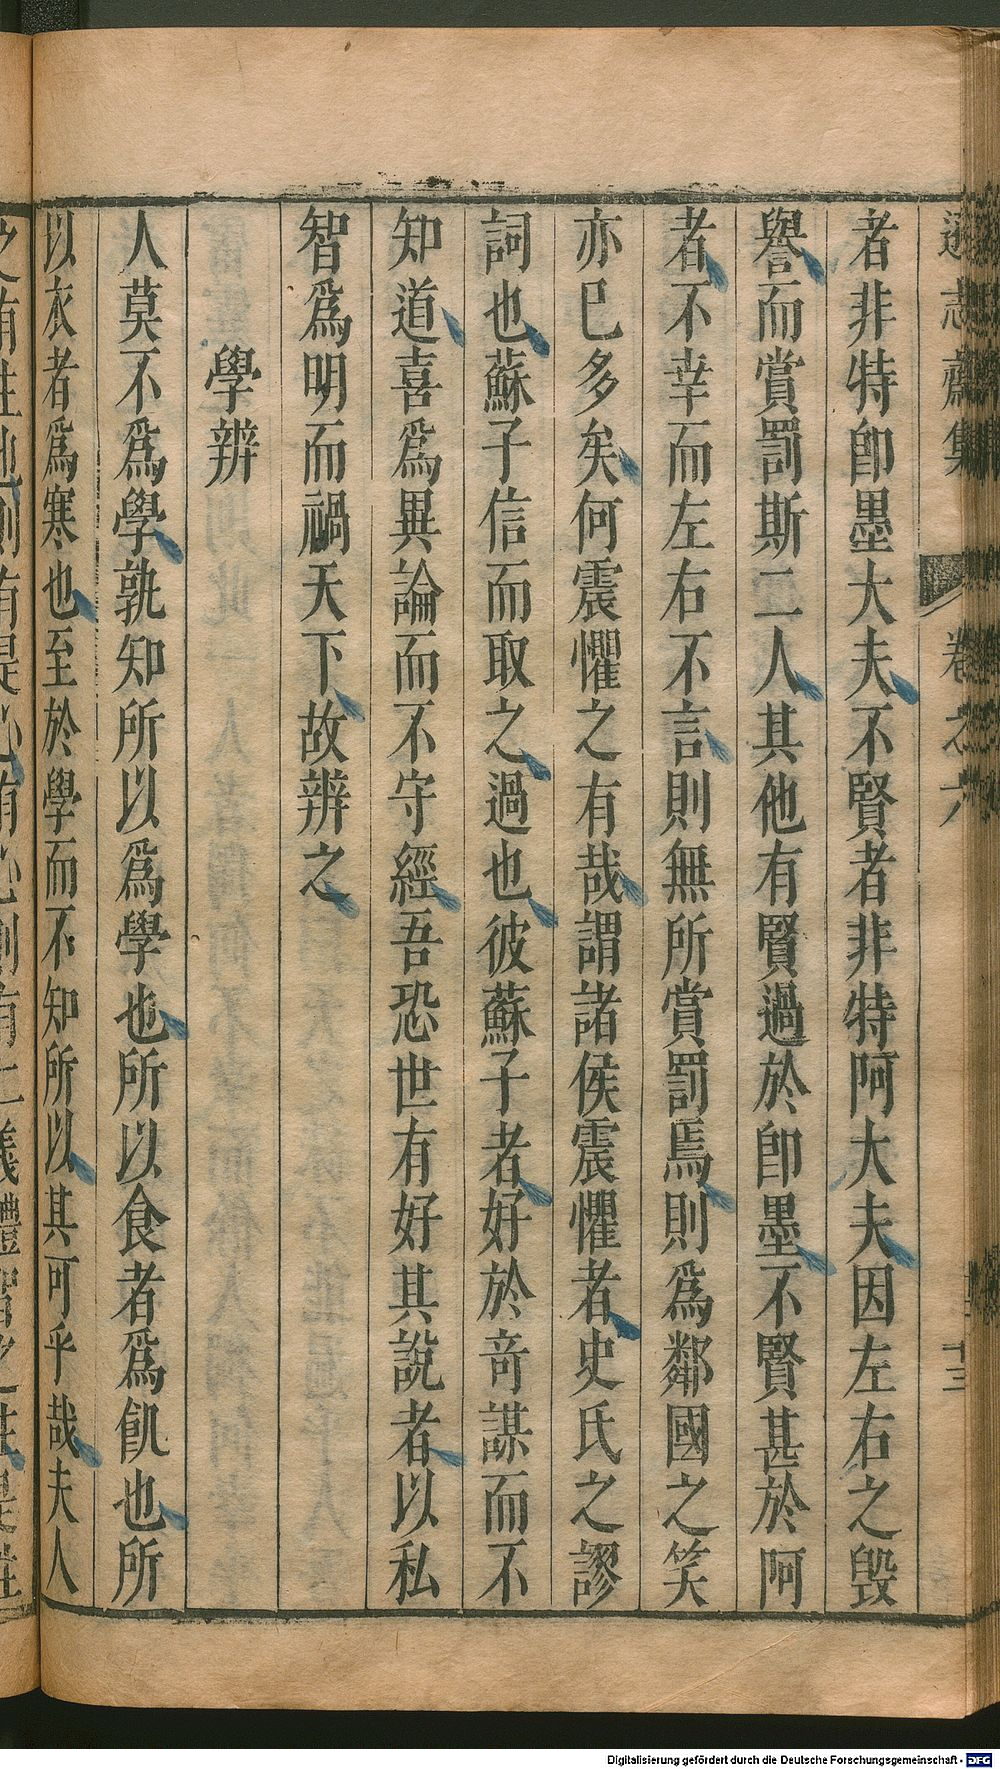 遜志齋集 卷之六 十三
者非特卽墨大夫不賢者非特阿大夫因左右之毀
譽而賞罰斯二人其他有賢過於卽墨不賢甚於阿
者不幸而左右不言則無所賞罰焉則爲鄰國之笑
亦已多矣何震懼之有哉謂諸侯震懼者史氏之謬
詞也蘇子信而取之過也彼蘇子者好於奇謀而不
知道喜爲異論而不守經吾恐世有好其說者以私
智爲明而禍天下故辨之
學辨
人莫不爲學孰知所以爲學也所以食者爲飢也所
以衣者爲寒也至於學而不知所以其可乎哉夫人
Digitalisierung gefördert durch die Deutsche Forschungsgemeinschaft - DFG